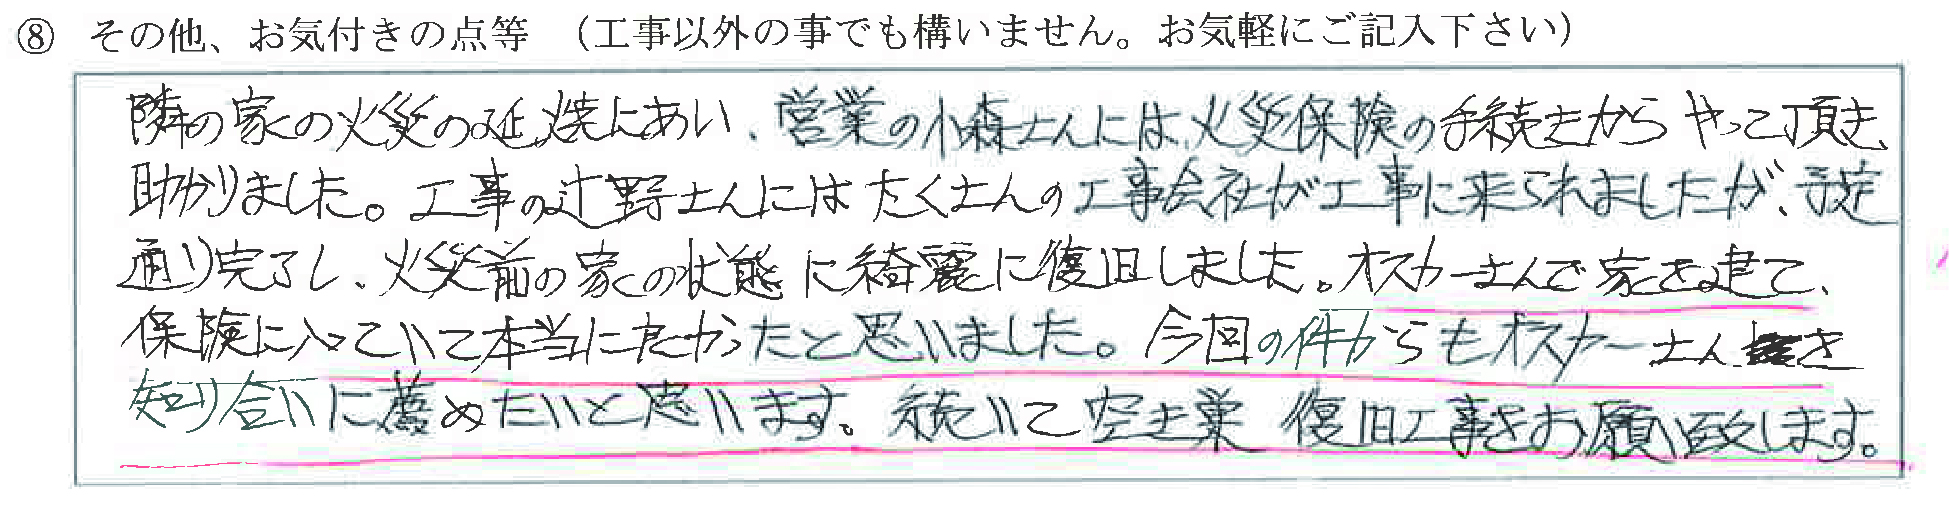 ⑧ その他、お気付きの点等 （工事以外の事でも構いません。お気軽にご記入下さい）
隣の家の火災の延焼にあい、営業の小森さんには火災保険の手続きからやって頂き、
助かりました。工事の辻野さんにはたくさんの工事会社が工事に来られましたが、予定
通り完了し、火災前の家の状態に綺麗に復旧しました。オスカーさんで家を建て、
保険に入っていて本当によかったと思いました。今回の件からもオスカーさんを
知り合いに薦めたいと思います。続いて空き巣 復旧工事をお願い致します。